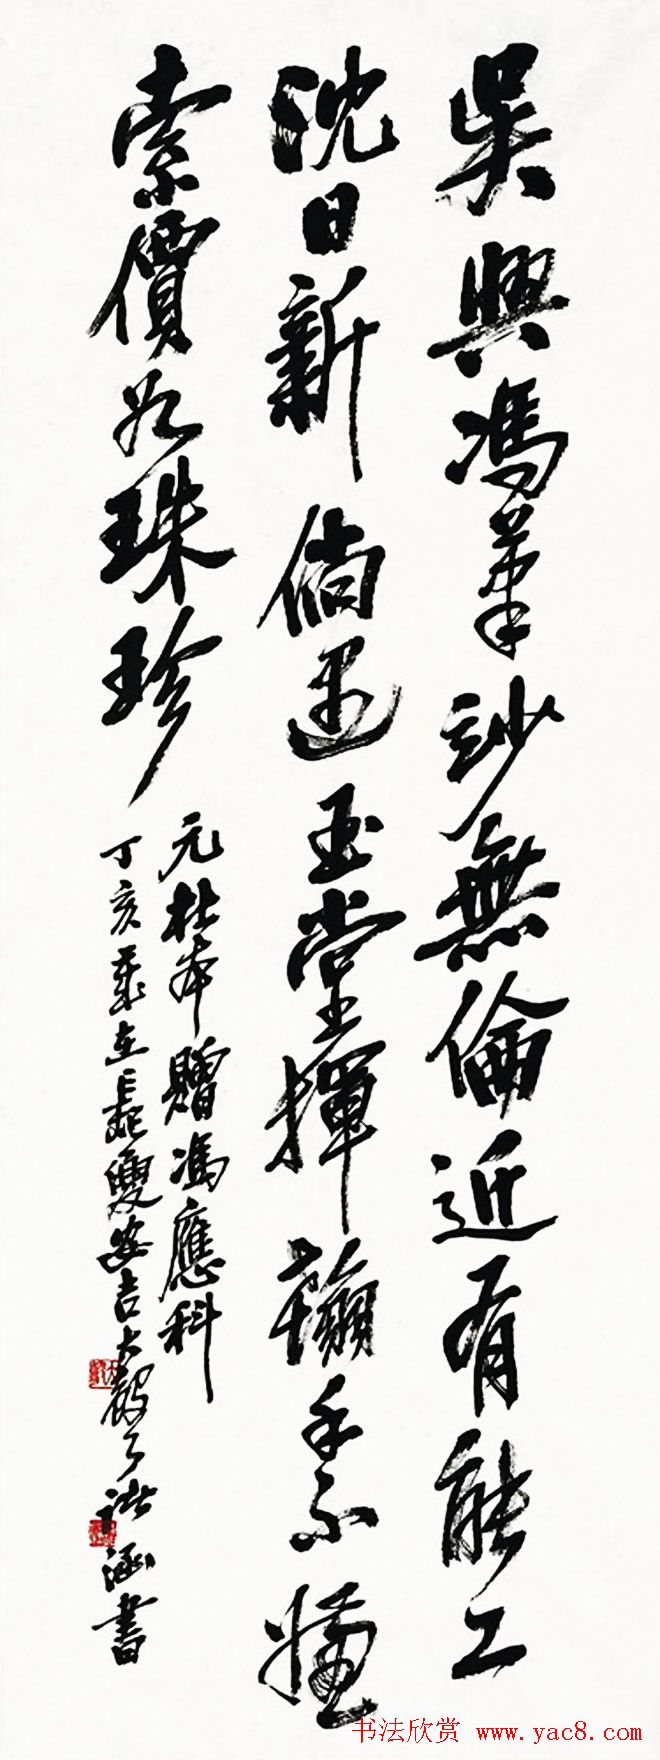 吳興馮筆妙無倫近有能工
沈日新倘遇玉堂揮翰手不
索價如珠珍
元杜本贈馮應科
丁亥安吉大書
书法欣赏 www.yac8.com